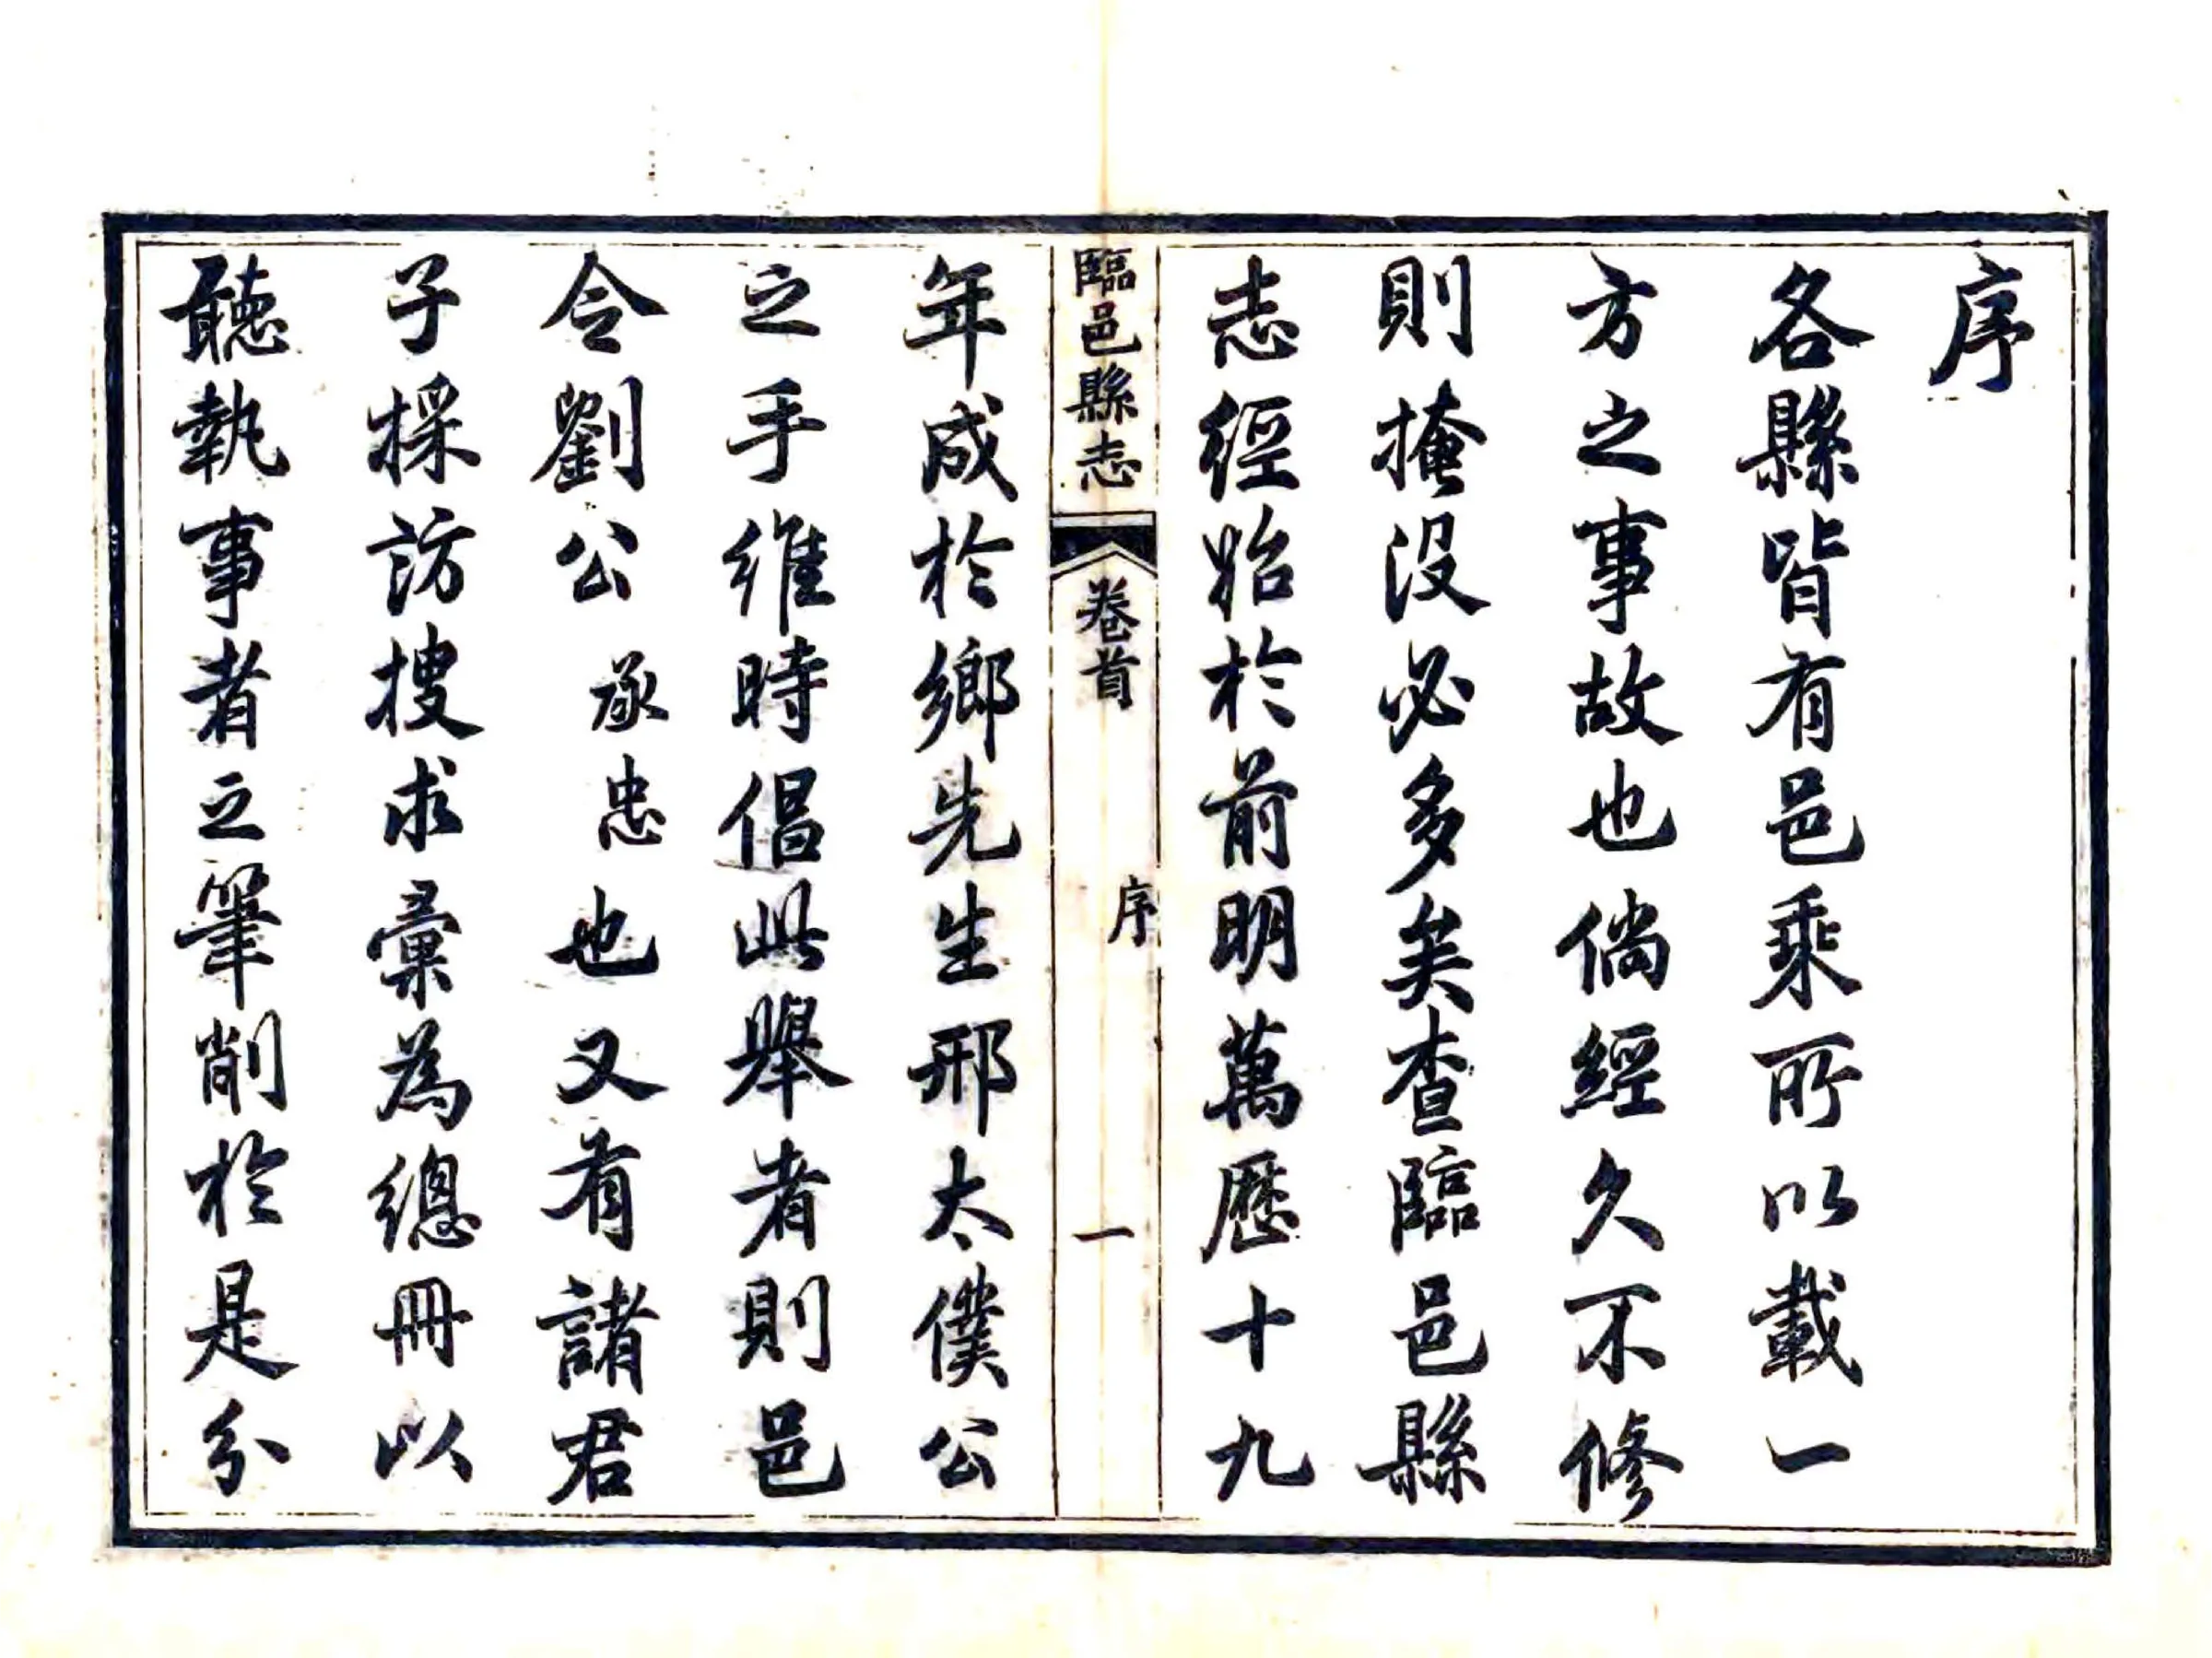 序
各縣皆有邑乘所以載一
方之事故也倘經久不修
則掩没必多矣查臨邑縣
志經始於前明萬歷十九
臨邑縣志 卷首 序 一
年成於鄉先生邢太僕公
之手維時倡此舉者則邑
令劉公承忠也又有諸君
子採訪搜求彙為總冊以
聽執事者之筆削於是分